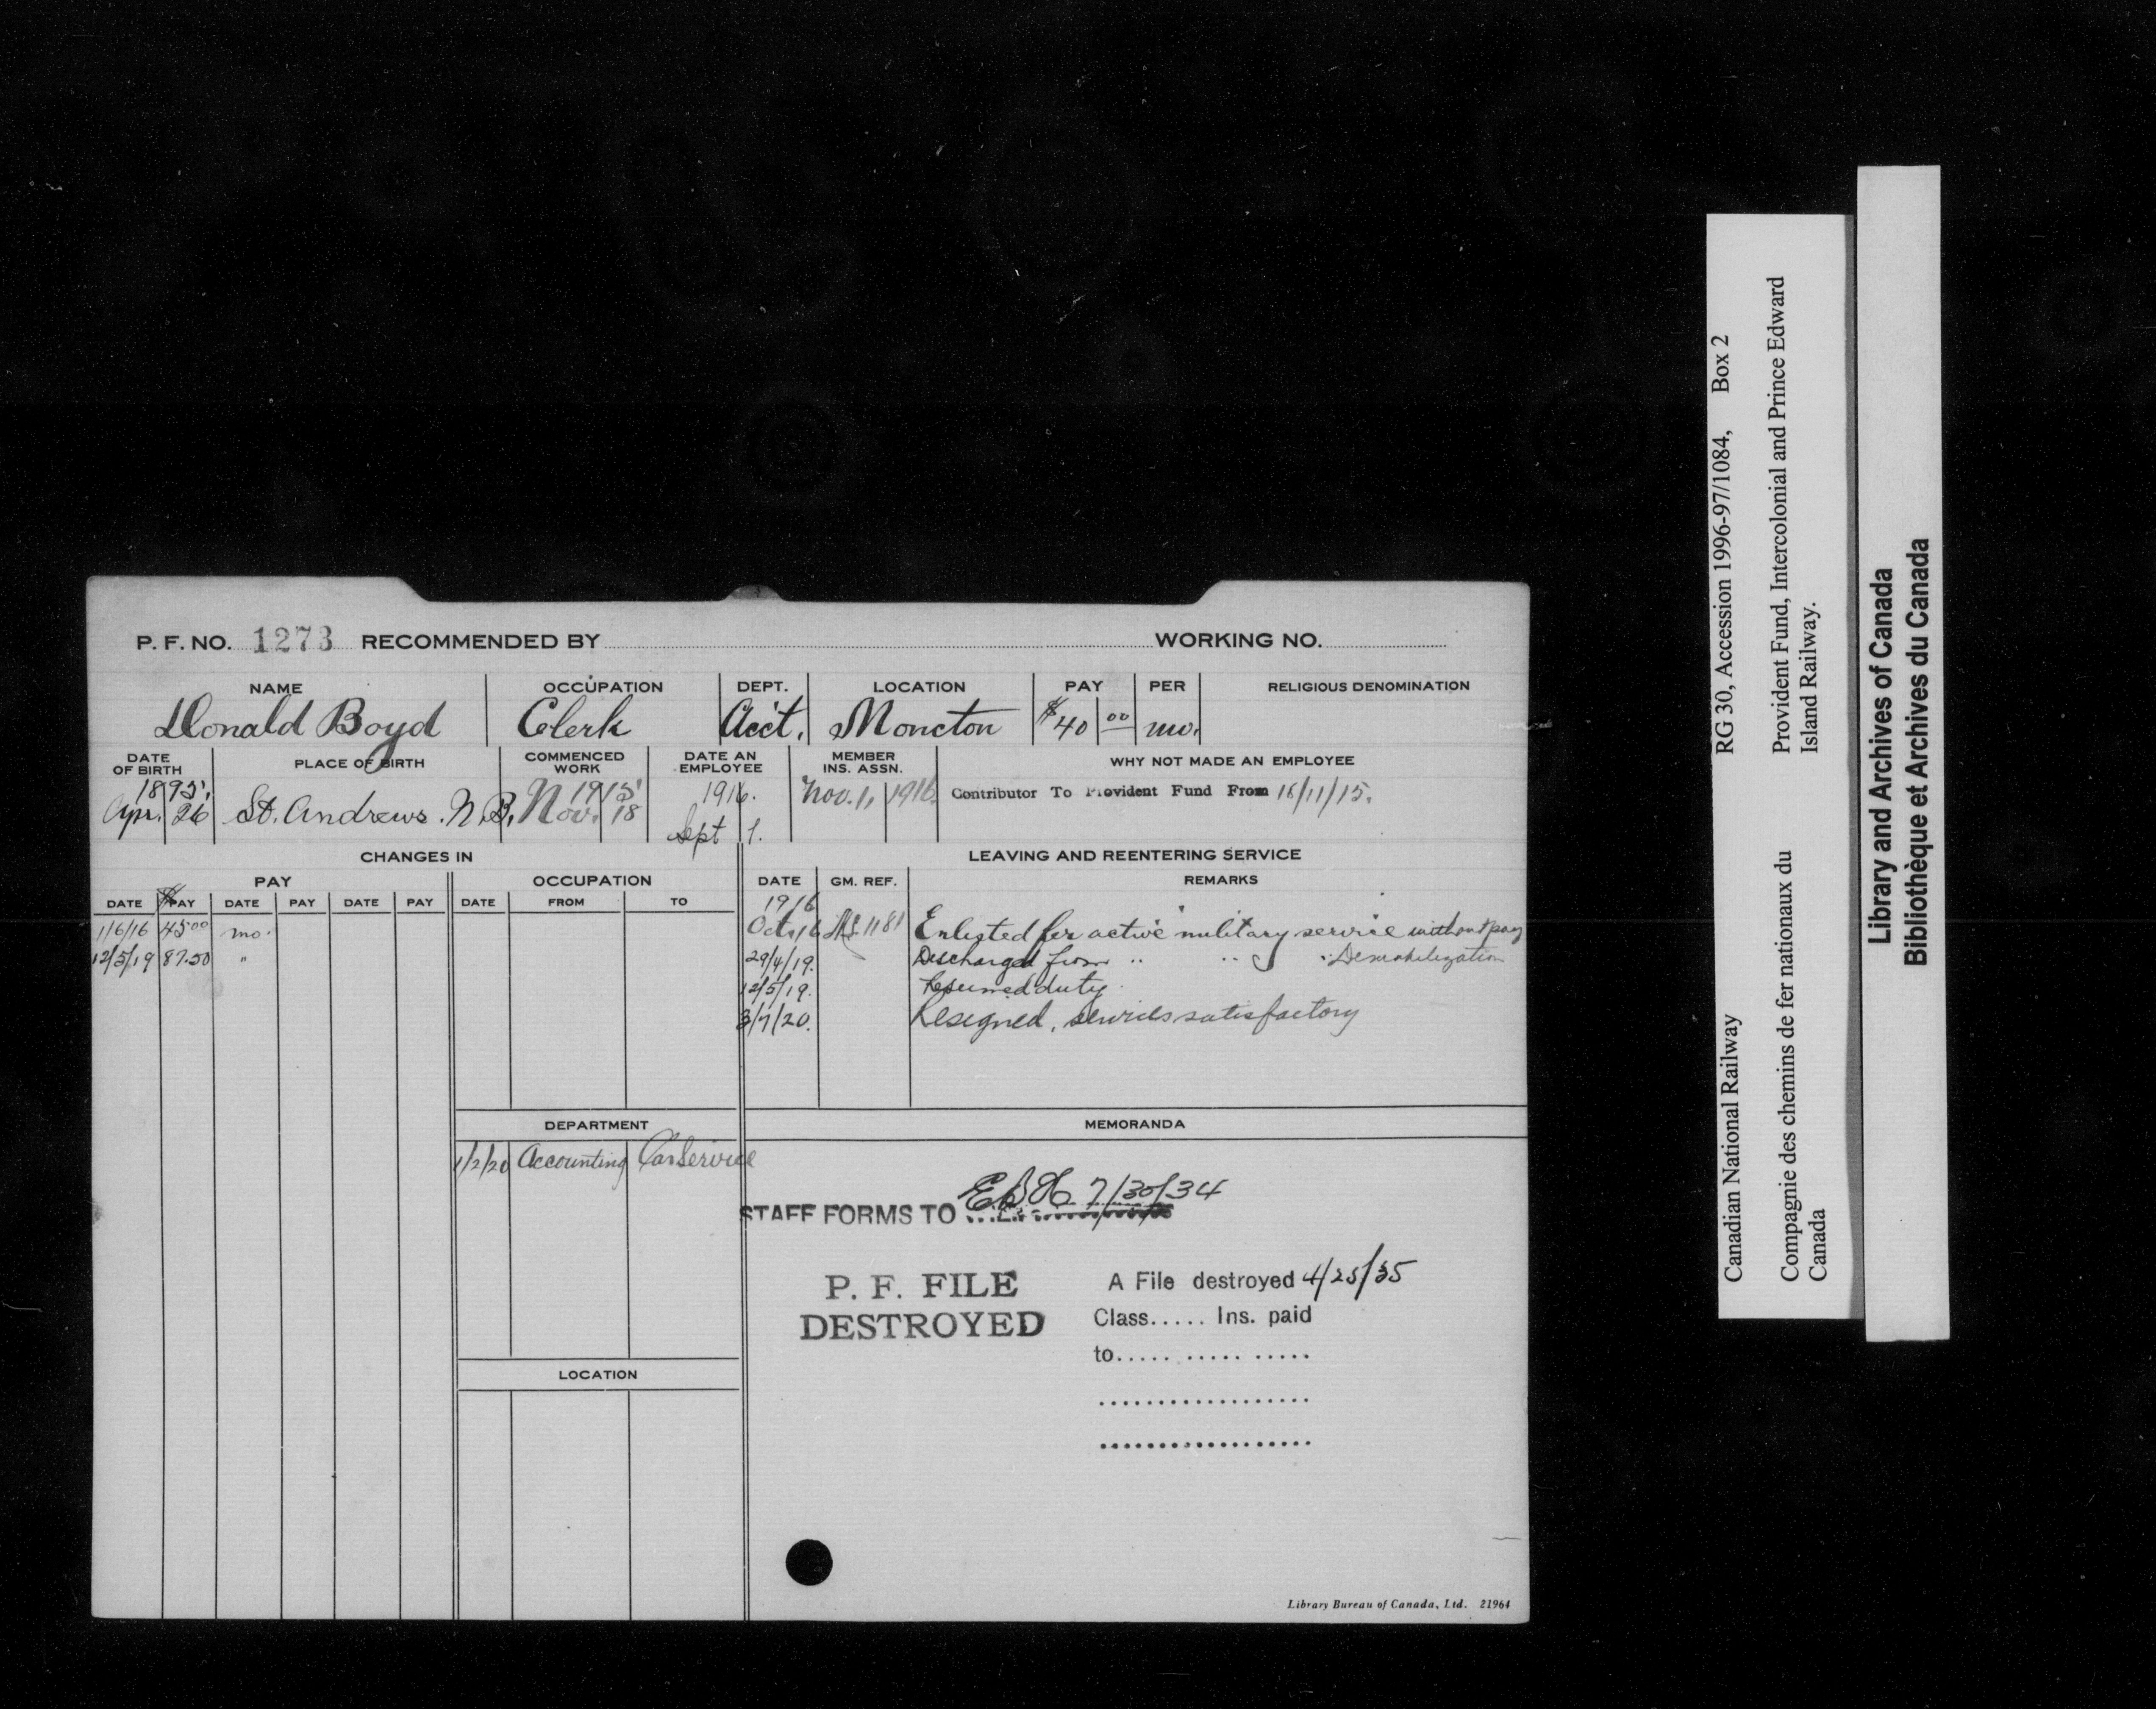 P. F. NO. 1273 RECOMMENDED BY WORKING NO.
NAME OCCUPATION DEPT. LOCATION PAY PER RELIGIOUS DENOMINATION
Donald Boyd Clerk Acct. Moncton $40 00 mo.
DATE OF BIRTH PLACE OF BIRTH COMMENCED WORK DATE AN EMPLOYEE MEMBER INS. ASSN. WHY NOT MADE AN EMPLOYEE
1895. 1915 1916. Nov. 1, 1916. Contributor To Provident Fund From 18/11/15.
Apr. 26 St. Andrews. N.B. Nov. 18 Sept 1.
CHANGES IN LEAVING AND REENTERING SERVICE
PAY OCCUPATION DATE GM. REF. REMARKS
DATE $ PAY DATE PAY DATE PAY DATE FROM TO
1916
1/6/16 45 00 mo. Oct. 16 1181 Enlisted for active military service without pay
12/5/19 87.50 " 29/4/19. Discharged from " " " Demobilization
12/5/19. Resumed duty.
3/7/20. Resigned, services satisfactory
DEPARTMENT MEMORANDA
1/2/20 Accounting Car Service
STAFF FORMS TO 7/30/34
P. F. FILE
DESTROYED
A File destroyed 4/25/35
Class..... Ins. paid
to..... ..... .....
LOCATION
Library Bureau of Canada, Ltd. 21964
Canadian National Railway RG 30, Accession 1996-97/1084, Box 2
Compagnie des chemins de fer nationaux du
Canada
Provident Fund, Intercolonial and Prince Edward
Island Railway.
Library and Archives of Canada
Bibliothèque et Archives du Canada